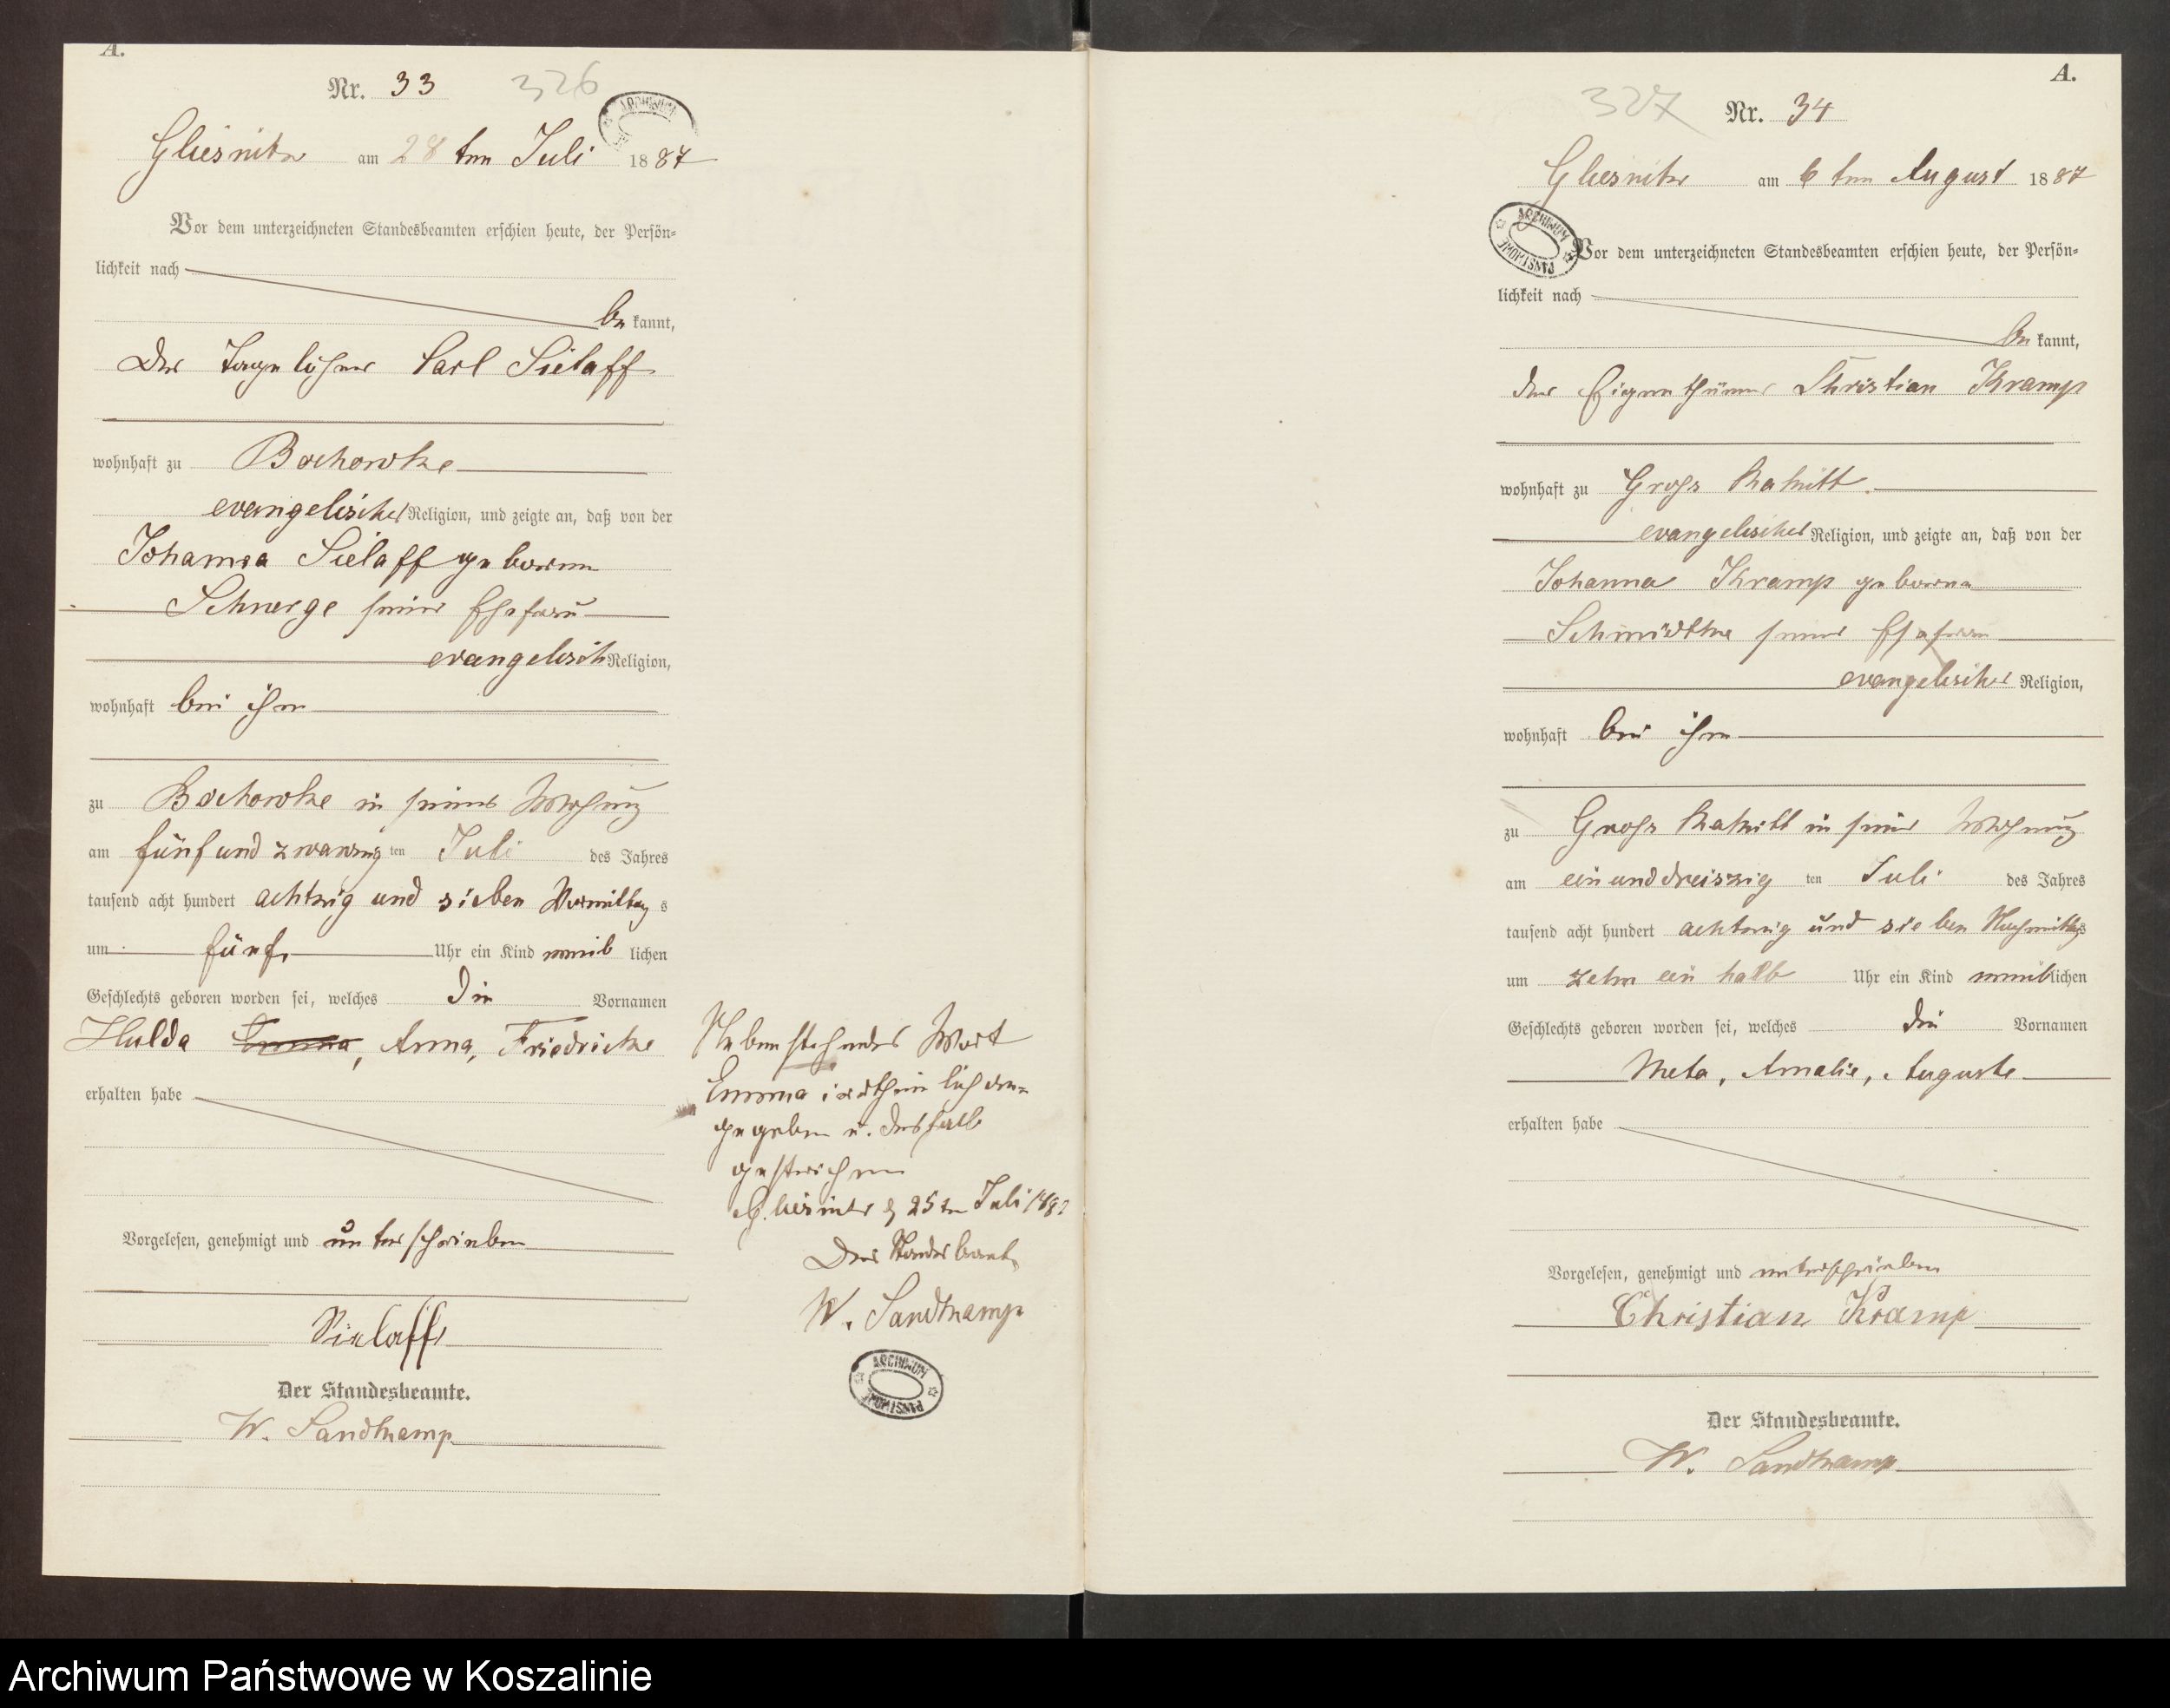 A.
Nr. 33 326
ARCHIWUM
Gliesnitz am 28 ten Juli 1887
Vor dem unterzeichneten Standesbeamten erschien heute, der Persön-
lichkeit nach
be kannt,
Der Tagelöhner Carl Sielaff
wohnhaft zu Bochowke
evangelischer Religion, und zeigte an, daß von der
Johanna Sielaff geborenen
Schwerge seiner Ehefrau
evangelisch Religion,
wohnhaft bei ihm
zu Bochowke in seiner Wohnung
am fünf und zwanzig ten Juli des Jahres
tausend acht hundert achtzig und sieben Vormittag s
um fünf Uhr ein Kind weib lichen
Geschlechts geboren worden sei, welches die Vornamen
Hulda Emma, Anna, Friedricke
erhalten habe
Vorgelesen, genehmigt und unterschrieben
Sielaff
Der Standesbeamte.
W. Sandkamp
Nebenstehendes Wort
Emma irrthümlich an-
gegeben u. deshalb
gestrichen
Gliesnitz d 25ten Juli 1887
Der Standesbeamte
W. Sandkamp
ARCHIWUM PAŃSTWOWE
A.
327 Nr. 34
Gliesnitz am 6 ten August 1887
ARCHIWUM PAŃSTWOWE
Vor dem unterzeichneten Standesbeamten erschien heute, der Persön-
lichkeit nach
be kannt,
der Eigenthümer Christian Kramp
wohnhaft zu Gross Rakitt
evangelischer Religion, und zeigte an, daß von der
Johanna Kramp geborne
Schmidtke seiner Ehefrau
evangelischer Religion,
wohnhaft bei ihm
zu Gross Rakitt in seiner Wohnung
am ein und dreiszig ten Juli des Jahres
tausend acht hundert achtzig und sieben Nachmittags
um zehn ein halb Uhr ein Kind weiblichen
Geschlechts geboren worden sei, welches die Vornamen
Meta, Amalie, Auguste
erhalten habe
Vorgelesen, genehmigt und unterschrieben
Christian Kramp
Der Standesbeamte.
W. Sandkamp
Archiwum Państwowe w Koszalinie